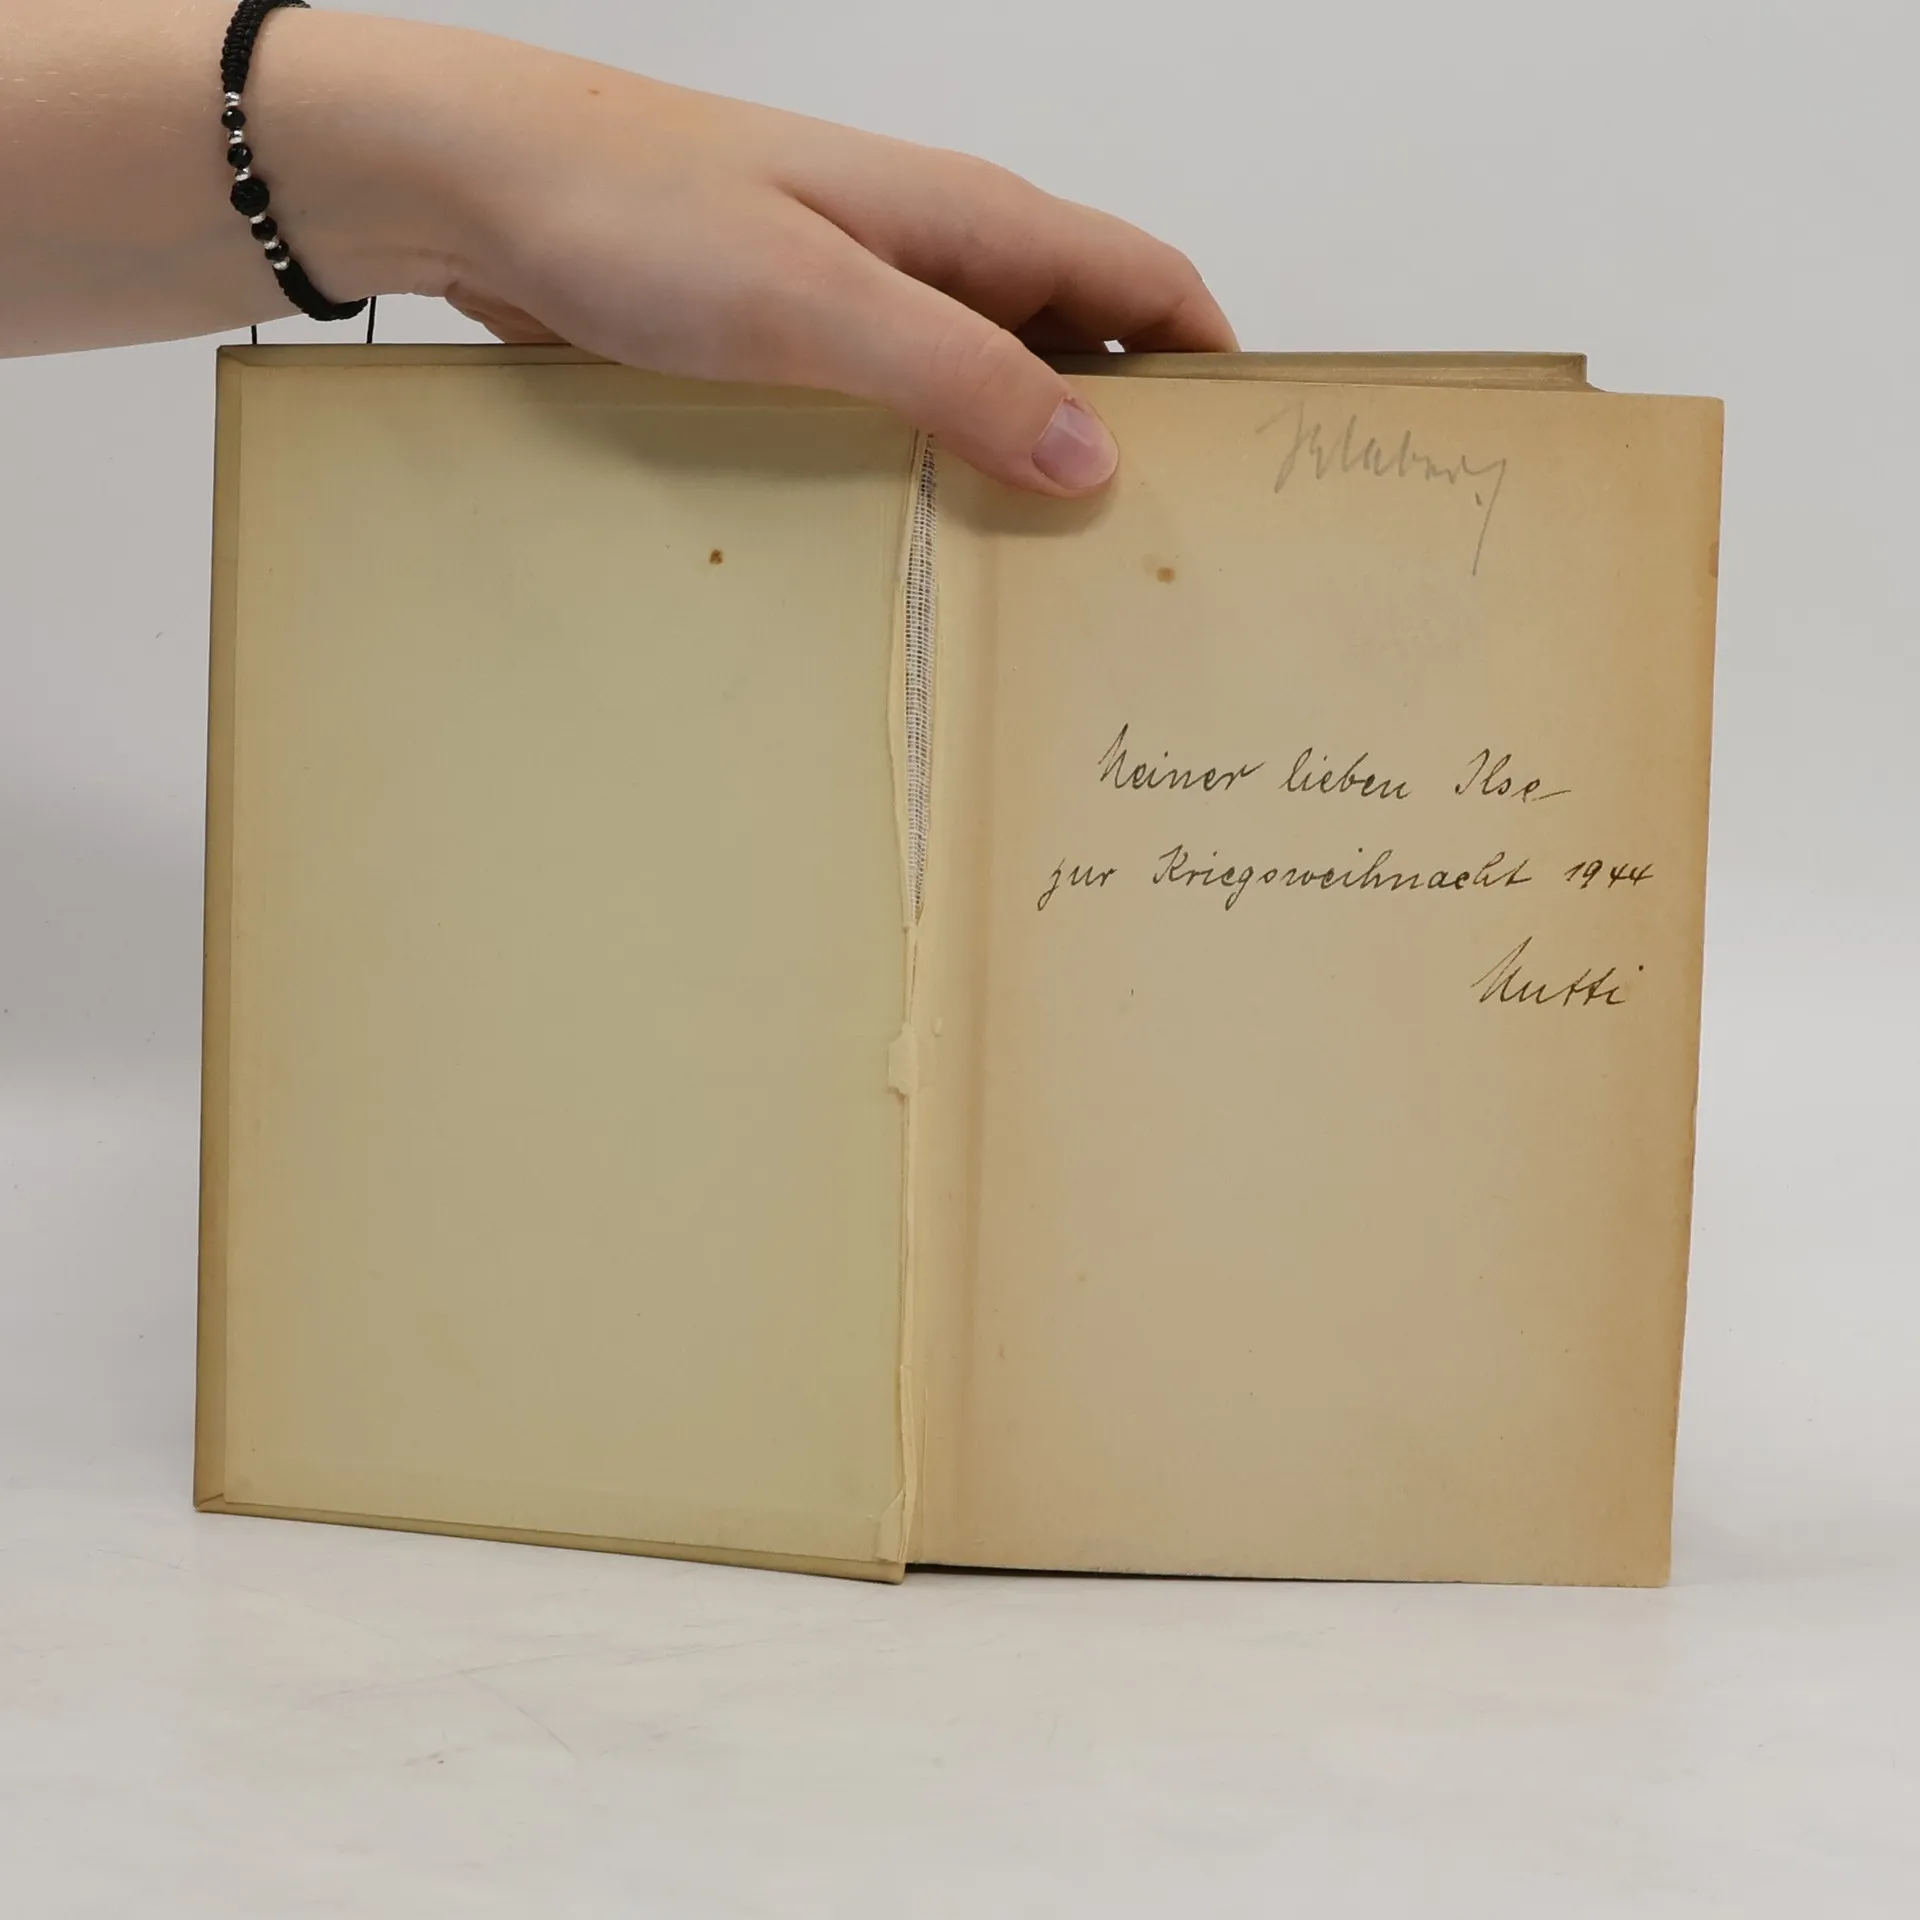 Meiner lieben Ilse
zur Kriegsweihnacht 1944
Mutti